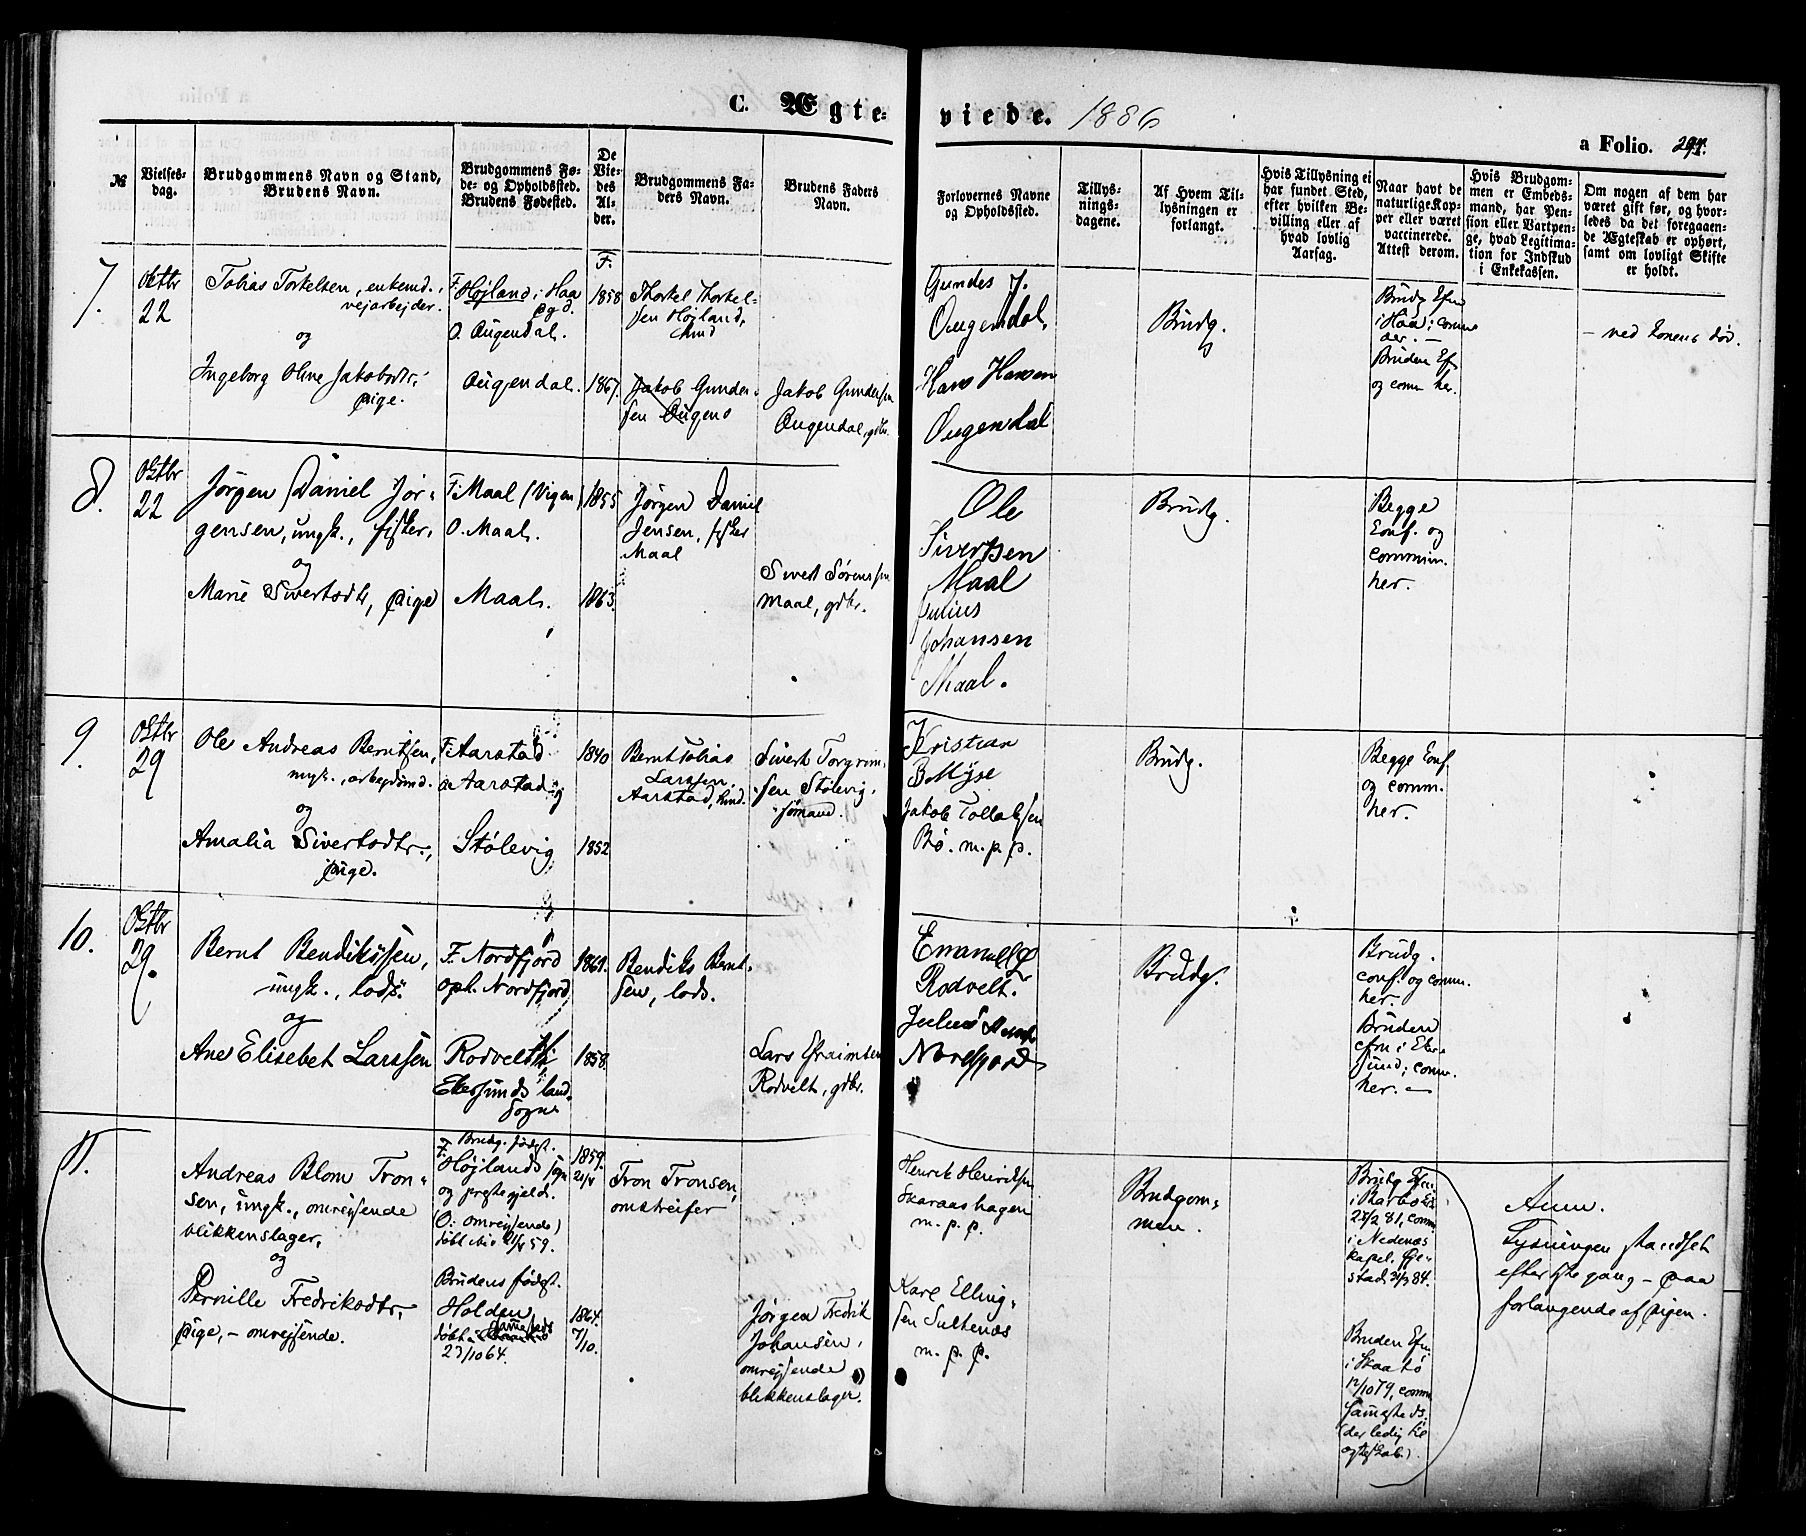 C. Ægte-
viede. 1886
a Folio. 294.
№
Vielses-
dag.
Brudgommens Navn og Stand,
Brudens Navn.
Brudgommens Fø-
de- og Opholdssted.
Brudens Fødested.
De
Vie-
des
Al-
der.
Brudgommens Fa-
ders Navn.
Brudens Faders
Navn.
Forlovernes Navne
og Opholdssted.
Tillys-
nings-
dagene.
Af Hvem Til-
lysningen er
forlangt.
Hvis Tillysning ei
har fundet Sted,
efter hvilken Be-
villing eller af
hvad lovlig
Aarsag.
Naar havt de
naturlige Kop-
per eller været
vaccinerede.
Attest derom.
Hvis Brudgom-
men er Embeds-
mand, har Pen-
sion eller Vartpen-
ge, hvad Legitima-
tion for Indskud
i Enkekassen.
Om nogen af dem har
været gift før, og hvor-
ledes da det foregaaen-
de Ægteskab er ophørt,
samt om lovligt Skifte
er holdt.
7.
Oktbr
22
Tobias Torkelsen, enkemd.,
vejarbejder.
og
Ingeborg Oline Jakobsdtr,
pige.
F. Højland i Haa
pgd.
O. Øugendal.
Øugendal.
F.
1858
1867.
Thorkel Thorkel-
sen Højland,
Jakob Gunder-
sen Øugens
Jakob Gundersen
Øugendal, gdbr.
Gundes J.
Øugendal,
Hans Hansen
Øugendal
Brudg.
Brudg Efm
i Haa; comm
der. —
Bruden Ef
og comm her.
- ved konens død.
8.
Oktbr
22
Jørgen Daniel Jør-
gensen, ungk., fisker,
og
Marie Sivertsdtr, pige
F. Maal (Vigan)
O. Maal.
Maal.
1855
1863.
Jørgen Daniel
Jensen, fisker
Maal
Sivert Sørensen
Maal, gdbr.
Ole
Sivertsen
Maal
Julius
Johansen
Maal.
Brudg.
Begge
Conf. og
commun.
her.
9.
Oktbr
29
Ole Andreas Berntsen,
ungk., arbejdsmd.
og
Amalia Sivertsdtr.,
pige.
F. Aarstad
o. Aarstad
Stølevig
1840
1852
Bernt Tobias
Larssen
Aarstad,
Sivert Torgrim-
sen Stølevig,
sømand.
Kristian
B Myse
Jakob Tollaksen
Bø. m. p. p.
Brudg.
Begge Conf
og comm.
her.
10.
Oktbr
29.
Bernt Bendikssen,
ungk., lods.
og
Ane Elisebet Larssen
F. Nordfjord
oph. Nordfjord
Rodvelt i
Ekersunds land-
sogn
1861.
1858.
Bendiks Bernt-
sen, lods.
Lars Efraimsen
Rodvelt, gdbr.
Emanuel L
Rodvelt.
Julius
Nordfjord
Brudg.
Brudg.
conf. og comm.
her.
Bruden
cfm i Eker-
sund; comm.
her. —
11.
Andreas Blom Tron-
sen, ungk., omrejsende
blikkenslager,
og
Pernille Fredriksdtr,
pige, - omrejsende.
Brudg. fødest.
F. Højlands sogn
og prestegjeld.
(O: omrejsende)
døbt 59.
Brudens fødest.
Holden
døbt
23/10 64.
1859.
21/4
1864.
7/10.
Tron Tronsen,
omstreifer
Jørgen Fredrik
Johansen,
omrejsende
blikkenslager.
Henrik Henriksen
Skaraashagen
m. p. p.
Karl Elling-
sen Sultenæs
m. p. p.
Brudgom-
men.
Brudg Efm
i Barbo
81, comm
i Nedenæs
kapel,
84.
Bruden Efm
i Skaatø
12/10 79, comm
samesteds.
(der ledig til
egteskab.)
Anm.
Lysningen standset
efter 1ste gang - paa
forlangende af pigen.